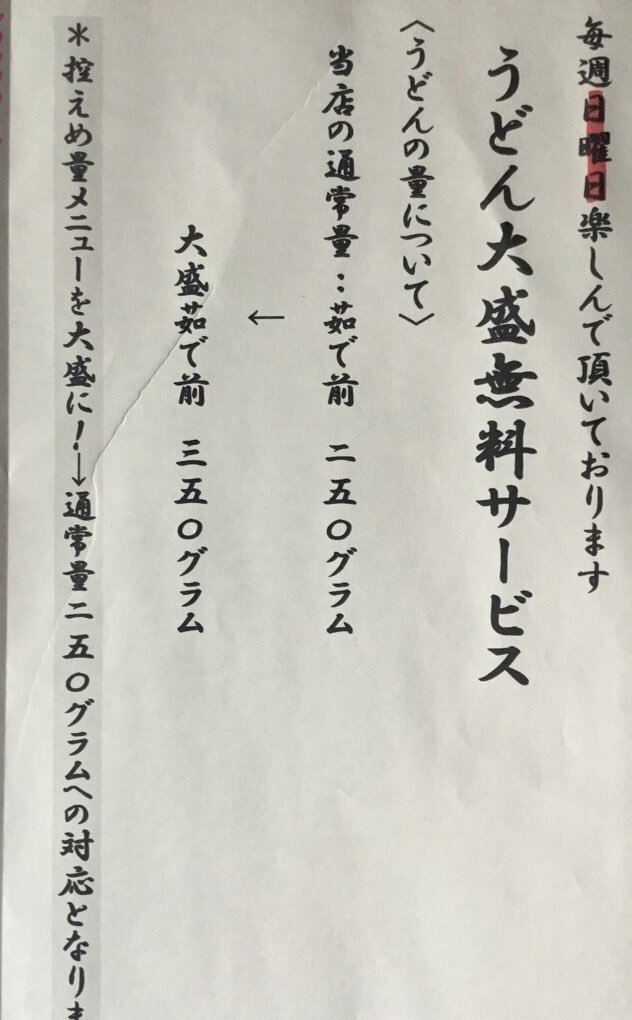 毎週日曜日楽しんで頂いております
うどん大盛無料サービス
〈うどんの量について〉
当店の通常量：茹で前　二五〇グラム
←
大盛茹で前　三五〇グラム
＊控えめ量メニューを大盛に！→通常量二五〇グラムへの対応となりま